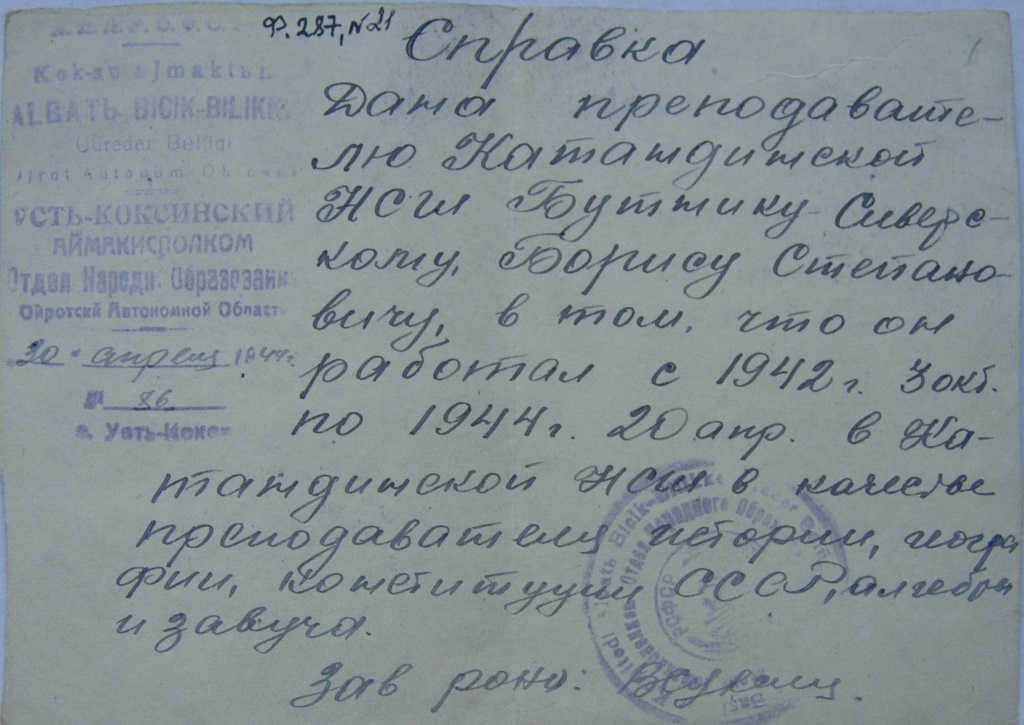 Ф. 287, №21
Справка
Kok-su ajmaktьn
ALBATЬ-BICIK-BILIKN
Uüreder Bөlügi
Ojrot Avtonom.
УСТЬ-КОКСИНСКИЙ
АЙМАКИСПОЛКОМ
Отдел Народн. Образовани
Ойротскй Автономной Област
"20" апреля 1944г.
№ 86
с. Усть-Кокса
Дана преподавате-
лю Катандинской
НСШ Бутнику-Сиверс-
кому, Борису Степано-
вичу, в том, что он
работал с 1942г. 3 окт.
по 1944г. 20 апр. в Ка-
тандинской НСШ в качестве
преподавателя истории, геогра
фии, конституции СССР, алгебры
и завуча.
Зав роно: